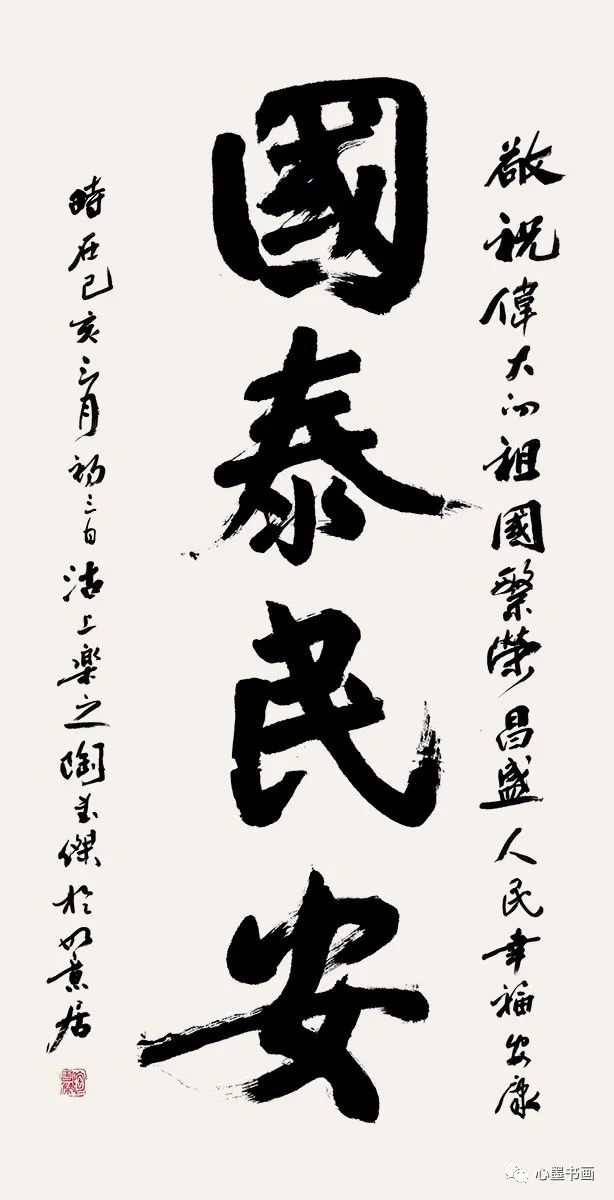 敬祝偉大的祖國繁榮昌盛人民幸福安康
國泰民安
時在己亥三月初三日沽上楽之陶傑於如意居
心墨书画